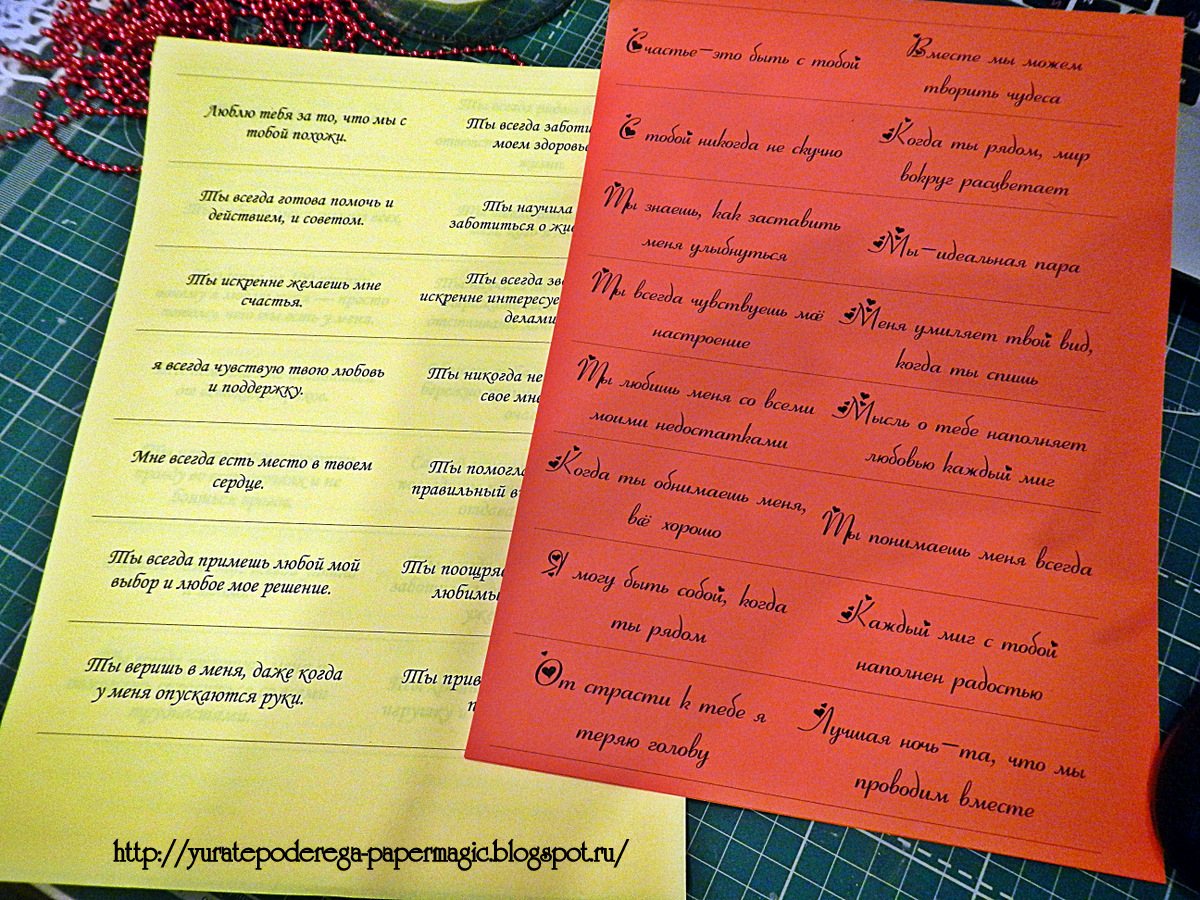 Люблю тебя за то, что мы с
тобой похожи.
Ты всегда готова помочь и
действием, и советом.
Ты искренне желаешь мне
счастья.
я всегда чувствую твою любовь
и поддержку.
Мне всегда есть место в твоем
сердце.
Ты всегда примешь любой мой
выбор и любое мое решение.
Ты веришь в меня, даже когда
у меня опускаются руки.
Ты всегда заботи
моем здоровье
Ты научила
заботиться о жи
Ты всегда зво
искренне интересуе
делами
Ты никогда не
свое мне
Ты помогла
правильный в
Ты поощря
любимы
Ты прив
Счастье-это быть с тобой
С тобой никогда не скучно
Ты знаешь, как заставить
меня улыбнуться
Ты всегда чувствуешь моё
настроение
Ты любишь меня со всеми
моими недостатками
Когда ты обнимаешь меня,
всё хорошо
Я могу быть собой, когда
ты рядом
От страсти к тебе я
теряю голову
Вместе мы можем
творить чудеса
Когда ты рядом, мир
вокруг расцветает
Мы-идеальная пара
Меня умиляет твой вид,
когда ты спишь
Мысль о тебе наполняет
любовью каждый миг
Ты понимаешь меня всегда
Каждый миг с тобой
наполнен радостью
Лучшая ночь-та, что мы
проводим вместе
http://yuratepoderega-papermagic.blogspot.ru/